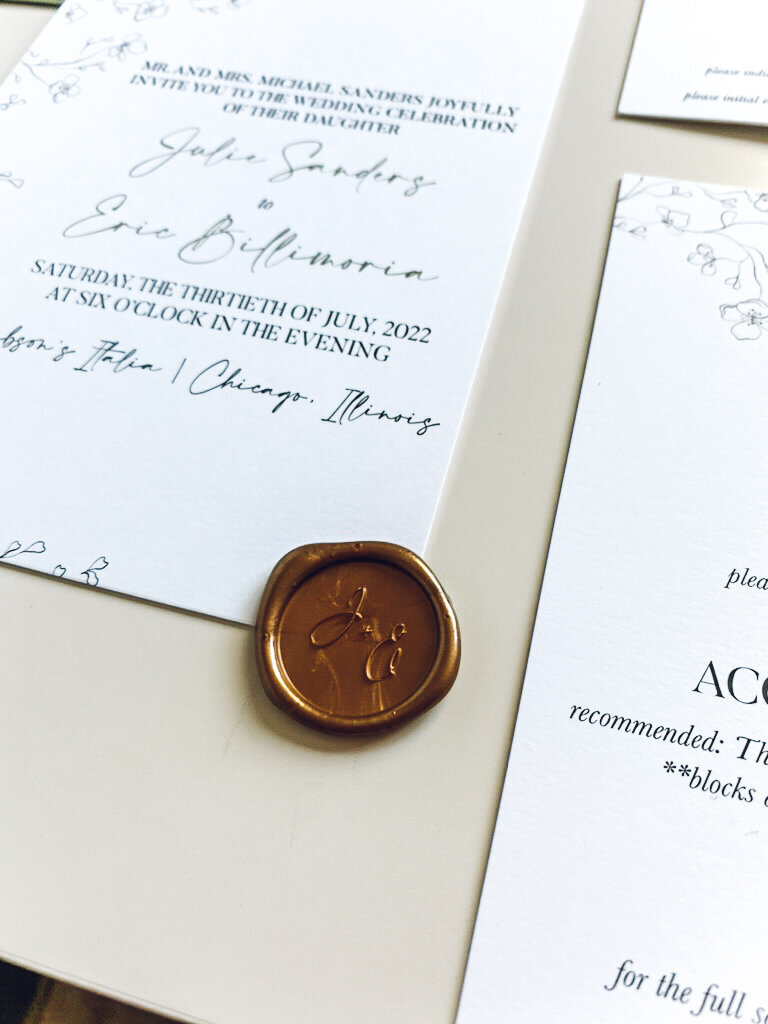 MR. AND MRS. MICHAEL SANDERS JOYFULLY
INVITE YOU TO THE WEDDING CELEBRATION
OF THEIR DAUGHTER
Julie Sanders
to
Eric Billimoria
SATURDAY, THE THIRTIETH OF JULY, 2022
AT SIX O'CLOCK IN THE EVENING
bson's Italia | Chicago, Illinois
J & E
please indi
please initial e
plea
ACC
recommended: Th
**blocks
for the full s